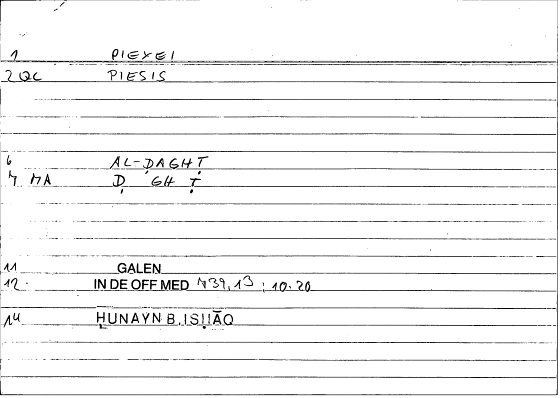 1 PIEXEI
2 QC PIESIS
6 AL-ḌAGHṬ
7 MA Ḍ GH Ṭ
11 GALEN
12 IN DE OFF MED 739,13 ; 10.20
14 ḤUNAYN B.ISḤĀQ